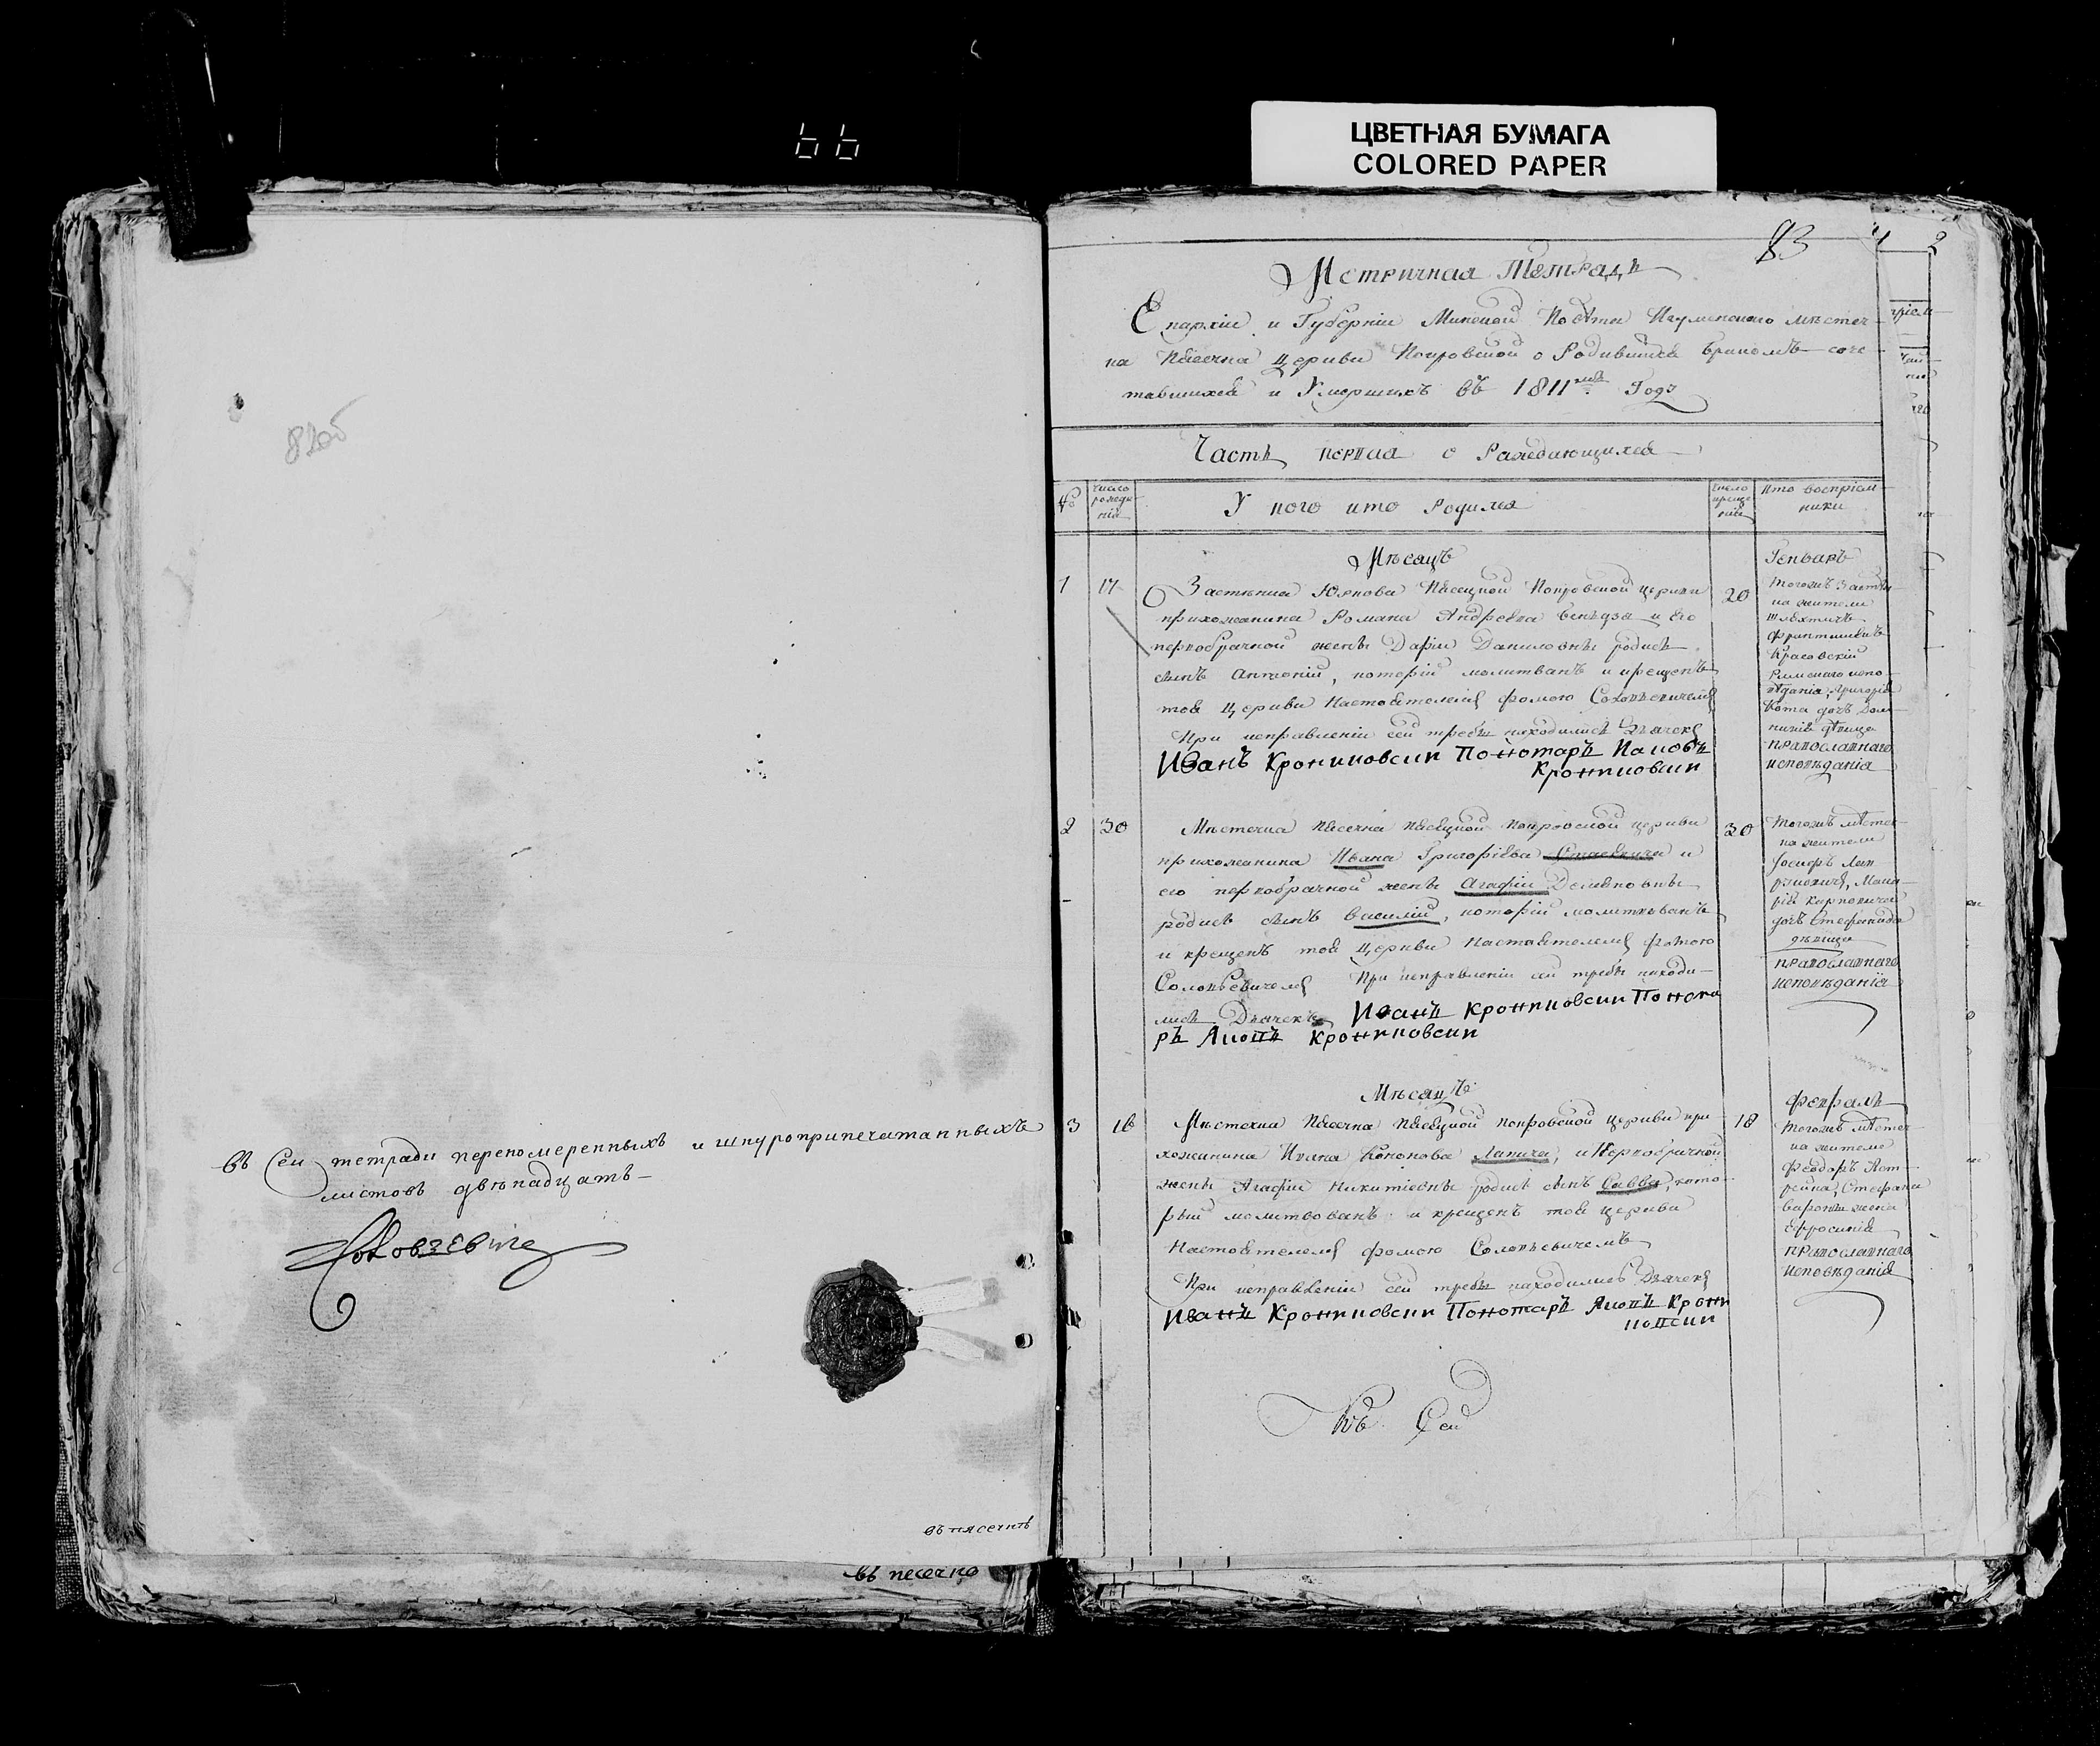 66
ЦВЕТНАЯ БУМАГА
COLORED PAPER
82об
въ сей тетради перенумеренныхъ и шнуроприпечатанныхъ
листовъ двѣнадцать
въ пясечнѣ
въ песечно
83
2
Метричная Тетрадь
Епархіи и Губерніи Минской Повѣта Игуменскаго мѣстеч-
ка Пясечна Церкви Покровской о Родившихся бракомъ соче-
тавшихся и Умершихъ въ 1811мъ Годѣ
Часть первая о Раждающихся
№
число рожде-
нія
У кого кто Родился
число креще-
нія
Кто воспріем-
ники
Мѣсяцъ
Генварь
1 17
Застѣнка Пясецкой Покровской церкви
прихожанина Романа Андреева и его
первобрачной жены Дарьи Даниловны родися
сынъ Антоній, которій молитванъ и крещенъ
той Церкви Настоятелемъ Фомою Соловьевичемъ
При исправленіи сей требы находились Дьячекъ
Иванъ Крониковски Пономаръ Яковъ
Крониковски
20
тогожъ застѣн-
ка жители
шляхтичъ
Красовскій
Римскаго испо-
вѣданія, Григорія
Кота дочь Дом-
никія дѣвица
православнаго
исповѣданія
2 30
Мѣстечка Пясечна Пясецкой Покровской церкви
прихожанина Ивана Григорьева и
его первобрачной жены Агафіи
родися сынъ Василій, которій молитвованъ
и крещенъ той Церкви Настоятелемъ Фомою
Соловьевичемъ При исправленіи сей требы находи-
лись Дьячекъ Иванъ Крониковски Понома
ръ Яковъ Крониковски
30
тогожъ мѣстеч-
ка жители
Іосифъ
дочь Стефанида
дѣвица
православнаго
исповѣданія
Мѣсяцъ
Февраль
3 16
Мѣстечка Пясечна Пясецкой Покровской церкви при-
хожанина Ивана Кононова Лапича, и Первобрачной
жены Агафіи Никитіевны родися сынъ Савва, кото-
рый молитвованъ и крещенъ той церкви
Настоятелемъ Фомою Соловьевичемъ
При исправленіи сей требы находились Дьячекъ
Иванъ Крониковски Пономаръ Яковъ Крони
ковски
18
тогожъ мѣстеч-
ка жители
Феодоръ
Стефана
жена
Ефросинія
православнаго
исповѣданія
Къ Сей